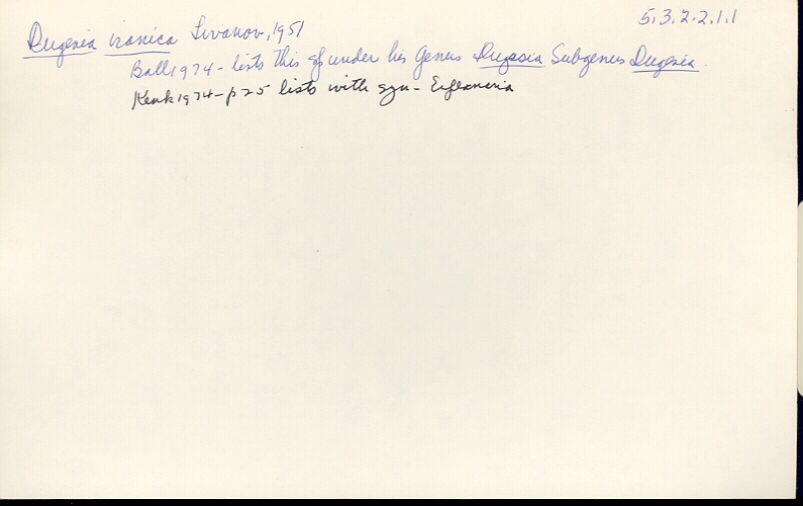 5.3.2.2.1.1
Dugesia iranica Livanov, 1951
Ball 1974 - lists this sp under his Genus Dugesia Subgenus Dugesia.
Kenk 1974 - p 25 lists with syn -